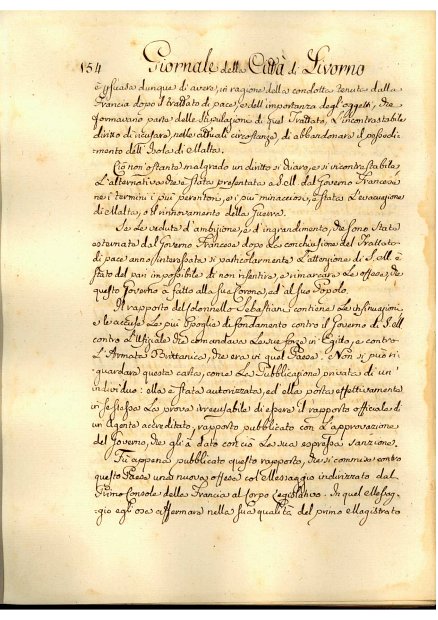 154 Giornale della Città di Livorno
è persuasa dunque di avere, in ragione della condotta tenuta dalla
Francia dopo il trattato di pace, e dell'importanza degl'oggetti, che
formavano parte delle stipulazione di quel Trattato, l'incontrastabile
diritto di ricusare, nelle attuali circostanze, di abbandonare il possedi-
mento dell'Isola di Malta.
Ciò non'ostante malgrado un diritto si chiaro, e si incontrastabile
L'alternativa che è stata presentata a S.M. dal Governo Francese
ne i termini i più perentori, e i più minacciosi, è stata L'evacuazione
di Malta, o il rinnovamento della Guerra.
Se le vedute d'ambizione, e d'ingrandimento, che sono state
esternate dal Governo Francese dopo La conclusione del Trattato
di pace anno interessata si particolarmente L'attenzione di S.M. è
stato del pari impossibile di non risentire, e rimarcare Le offese, che
questo Governo à fatto alla sua Corona, ed al suo Popolo.
Il rapporto del Colonnello Sebastiani contiene Le insinuazioni,
e le accuse Le più spoglie di fondamento contro il Governo di S.M.
contro L'Ufiziale che comandava Le sue forze in Egitto, e contro
L'Armata Brittanica, che era in quel Paese. Non si può ri-
guardare questa carta, come La Pubblicazione privata di un'
individuo: ella è stata autorizzata, ed ella porta effettivamente
in se stessa La prova irrecusabile di essere il rapporto officiale di
un Agente accreditato, rapporto pubblicato con L'approvazione
del Governo, che gli à dato con ciò La sua espressa sanzione.
Fù appena pubblicato questo rapporto, che si commise contro
questo Paese una nuova offesa col Messaggio indirizzato dal
Primo Console della Francia al Corpo Legislativo. In quel Messag-
gio egli osa affermare nella sua qualità del primo Magistrato